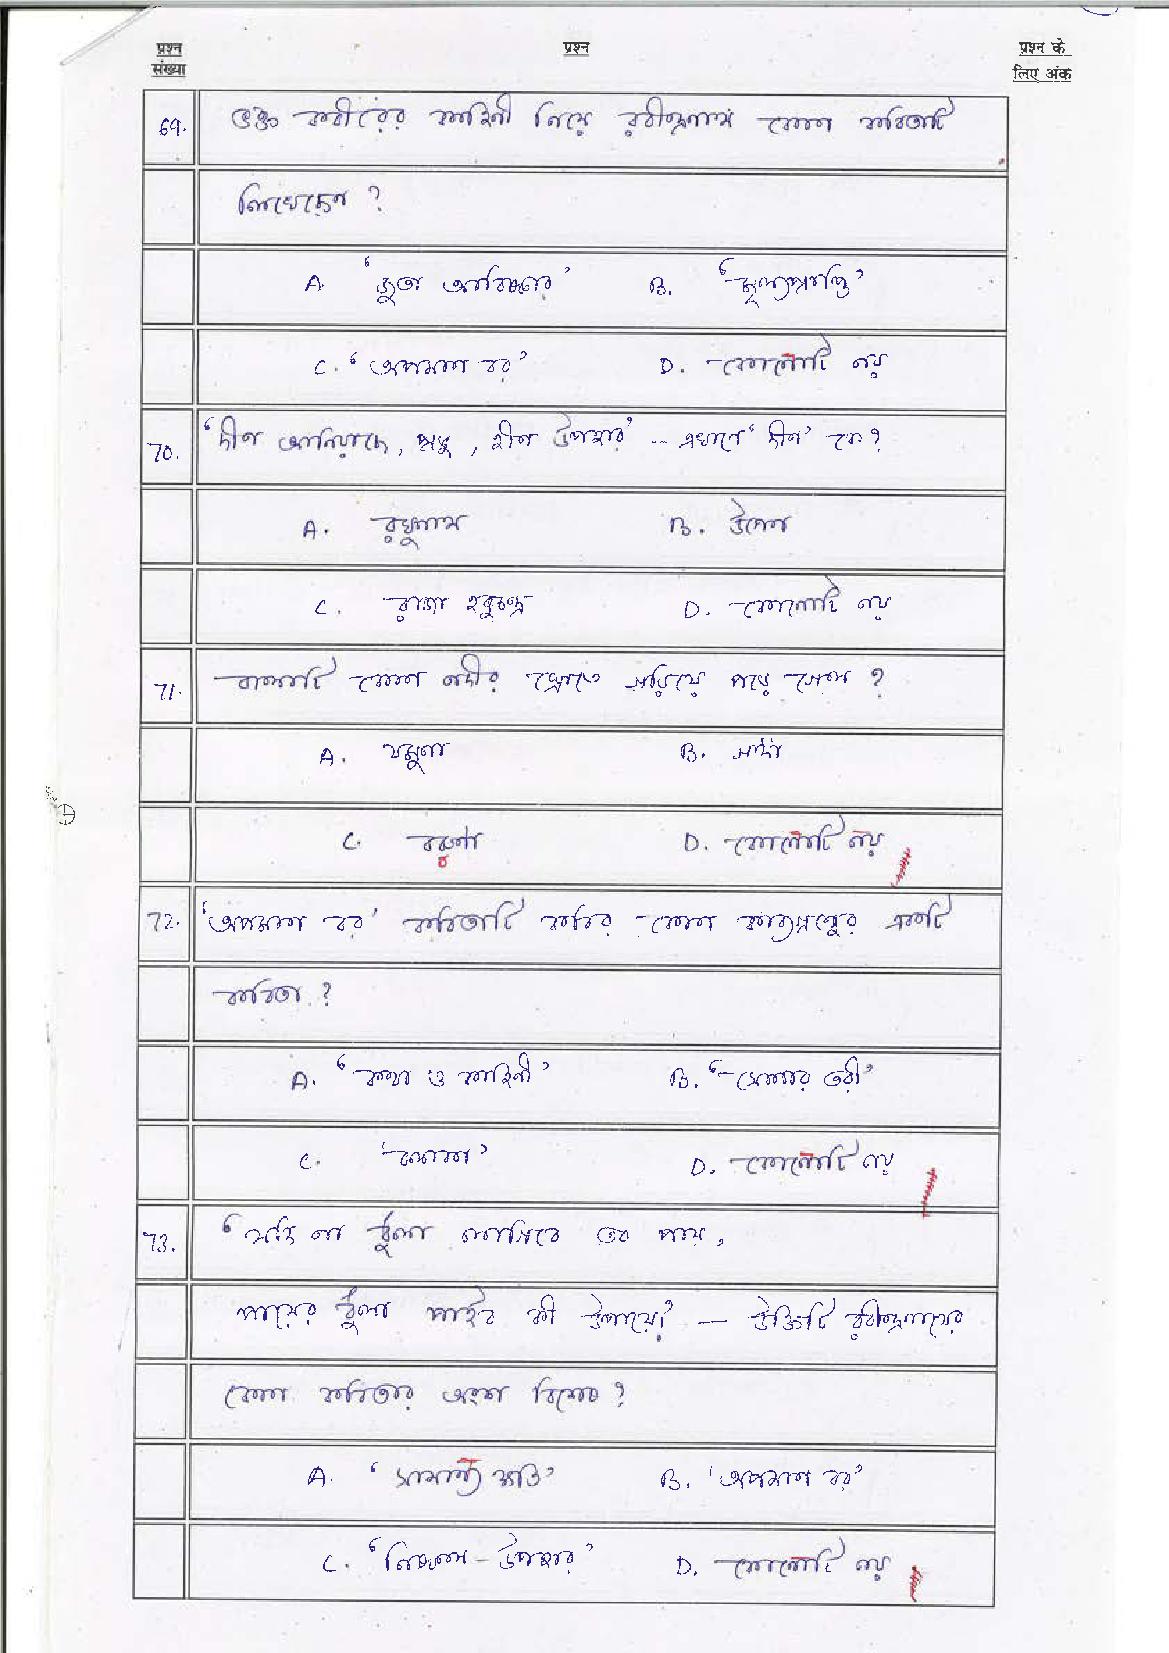 प्रश्न संख्या प्रश्न प्रश्न के लिए अंक
69. ভক্ত কবীরের কাহিনী নিয়ে রবীন্দ্রনাথ কোন কবিতাটি
লিখেছেন ?
A. 'জুতা আবিষ্কার' B. 'মূল্যপ্রাপ্তি'
C. 'অপমান বর' D. কোনোটি নয়
70. 'দীন আনিয়াছে, প্রভু, হীন উপহার' -- এখানে 'দীন' কে ?
A. রঘুনাথ B. উপেন
C. রাজা হবুচন্দ্র D. কোনোটি নয়
71. বালাটি কোন নদীর স্রোতে হারিয়ে পরে গেল ?
A. যমুনা B. গঙ্গা
C. বরুণা D. কোনোটি নয়
72. 'অপমান বর' কবিতাটি কবির কোন কাব্যগ্রন্থের একটি
কবিতা ?
A. 'কথা ও কাহিনী' B. 'সোনার তরী'
C. 'বলাকা' D. কোনোটি নয়
73. 'যদি না ধুলা লাগিবে তব পায়,
পায়ের ধুলা পাইব কী উপায়ে!' — উক্তিটি রবীন্দ্রনাথের
কোন কবিতার অংশ বিশেষ ?
A. 'সামান্য ক্ষতি' B. 'অপমান বর'
C. 'নিষ্ফল - উপহার' D. কোনোটি নয়